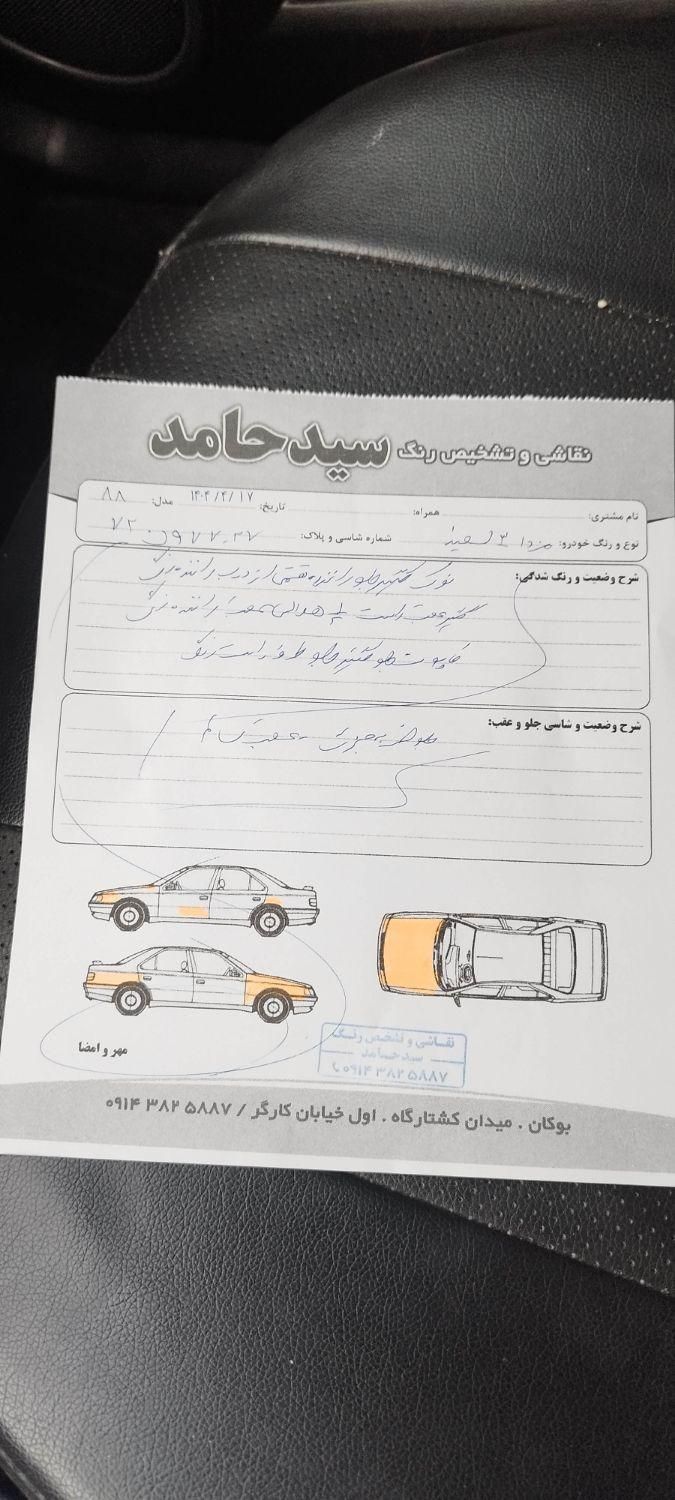 نقاشی و تشخیص رنگ سیدحامد
نام مشتری: همراه: تاریخ: ۱۴۰۴/۴/۱۷ مدل: ۸۸
نوع و رنگ خودرو: مزدا ۳ سفید شماره شاسی و پلاک:
شرح وضعیت و رنگ شدگی: نوک گلگیر جلو راننده قسمتی از درب راننده رنگ
گلگیر عقب راست
کاپوت جلو گلگیر جلو طرف راست رنگ
شرح وضعیت و شاسی جلو و عقب:
مهر و امضا
نقاشی و تشخیص رنگ
سید حامد
۰۹۱۴ ۳۸۲ ۵۸۸۷
بوکان . میدان کشتارگاه . اول خیابان کارگر / ۵۸۸۷ ۳۸۲ ۰۹۱۴